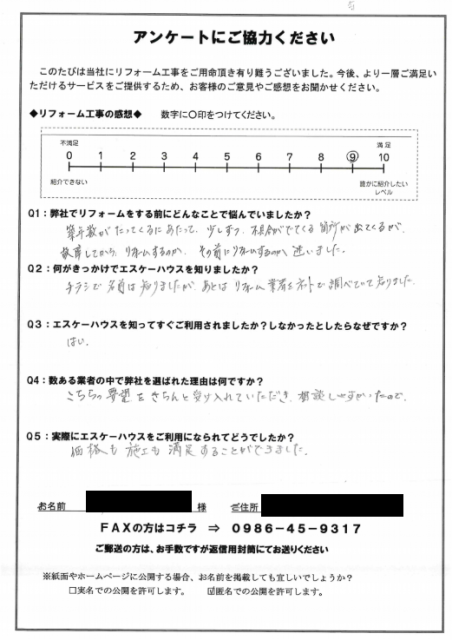 アンケートにご協力ください
このたびは当社にリフォーム工事をご用命頂き有り難うございました。今後、より一層ご満足い
ただけるサービスをご提供するため、お客様のご意見やご感想をお聞かせください。
◆リフォーム工事の感想◆ 数字に〇印をつけてください。
不満足 満足
0 1 2 3 4 5 6 7 8 9 10
紹介できない 誰かに紹介したい
レベル
Q1：弊社でリフォームをする前にどんなことで悩んでいましたか？
築年数がたってくるにあたって、少しずつ、不具合がでてくる箇所が出てくるが、
故障してから、リホームするのか、その前にリホームするのか迷いました。
Q2：何がきっかけでエスケーハウスを知りましたか？
チラシで名前は知りましたが あとは リホーム業者をネットで調べていて知りました.
Q3：エスケーハウスを知ってすぐご利用されましたか？しなかったとしたらなぜですか？
はい.
Q4：数ある業者の中で弊社を選ばれた理由は何ですか？
こちらの要望をきちんと受け入れていただき、相談しやすかったので.
Q5：実際にエスケーハウスをご利用になられてどうでしたか？
価格も施工も満足することができました.
お名前 様 ご住所
ＦＡＸの方はコチラ ⇒ 0986-45-9317
ご郵送の方は、お手数ですが返信用封筒にてお送りください
※紙面やホームページに公開する場合、お名前を掲載しても宜しいでしょうか？
□実名での公開を許可します。 ☑匿名での公開を許可します。